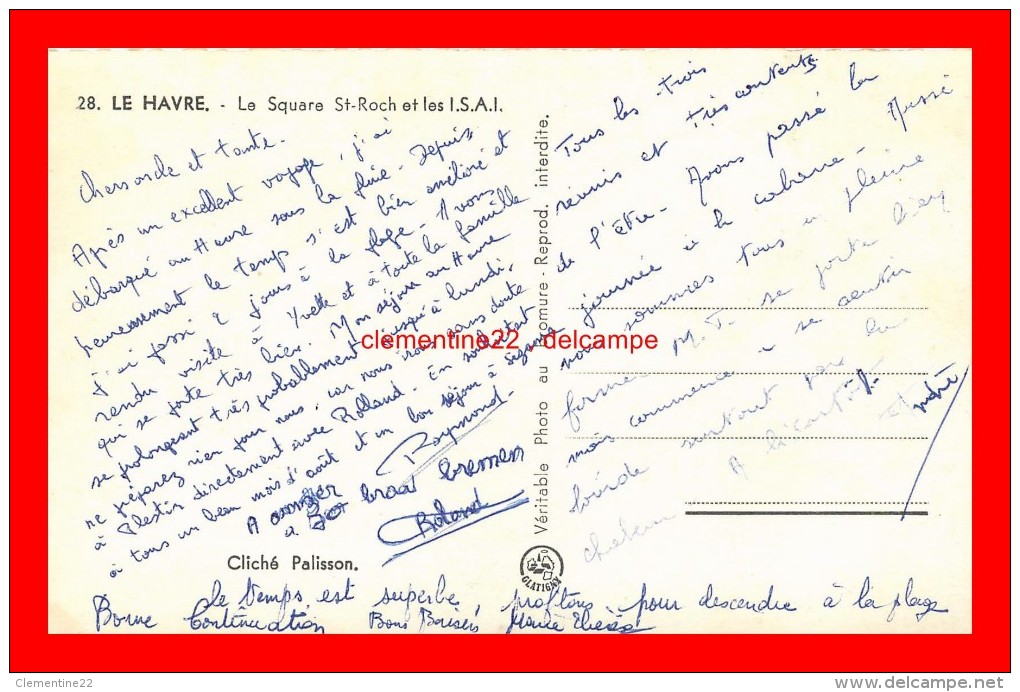 28. LE HAVRE. - Le Square St-Roch et les I.S.A.I.
Cher oncle et tante.
Après un excellent voyage, j'ai
débarqué au Havre sous la pluie. Depuis
heureusement le temps s'est bien amélioré et
j'ai passé 2 jours à la plage. Il vous
rendu visite à Yvette et à toute la famille
qui se porte très bien. Mon séjour au Havre
se prolongeant très probablement jusqu'à lundi,
ne préparez rien pour nous, car nous irons sans doute
à Plestin directement avec Rolland. En souhaitant
à tous un beau mois d'août et un bon séjour à Suzanne
Raymond.
A
braal bremen
Roland
Cliché Palisson.
Véritable Photo au Bromure - Reprod. interdite.
GLATIGNY
Tous les trois
réunis et très contents
de l'être. Avons passé la
journée à la cabane.
nous sommes tous en pleine
forme M.T. se porte bien
mais commence à se sentir
surtout par la
André
le temps est superbe profitons pour descendre à la plage
Bonne Continuation Bons Baisers Marie Thérèse
clementine22 - delcampe
Clementine22
www.delcampe.net